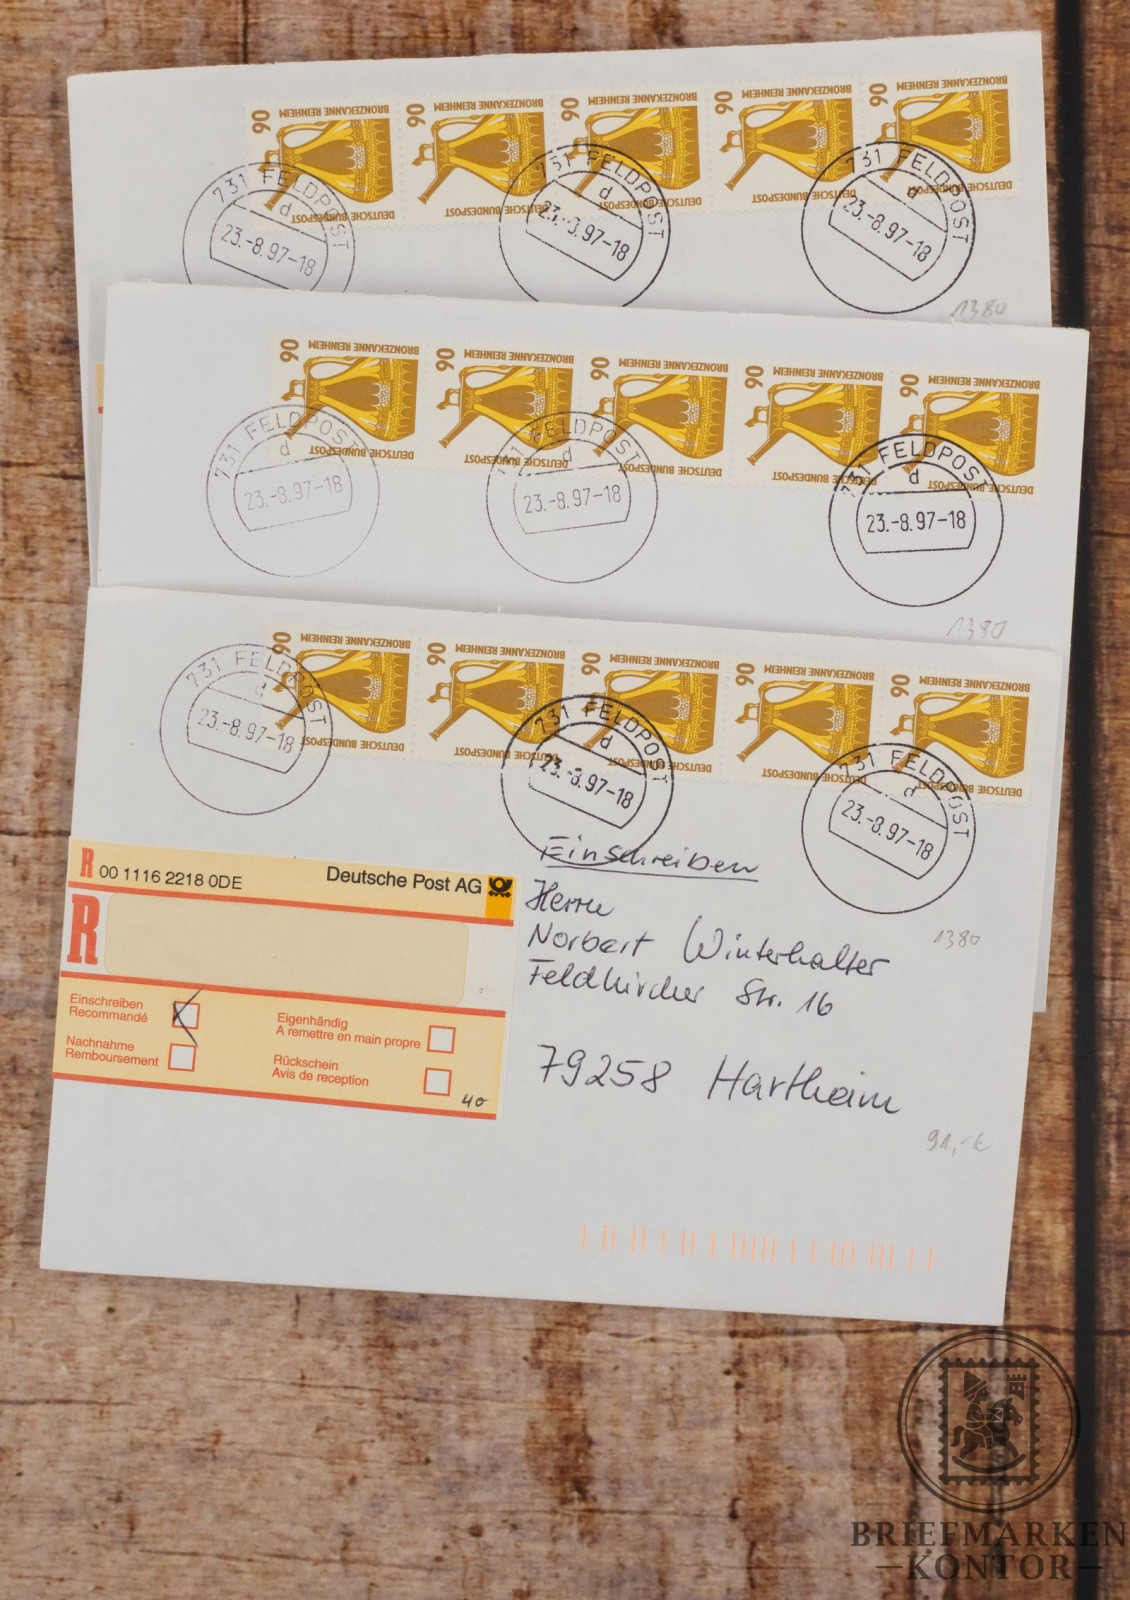 90 BRONZEKANNE REINHEIM DEUTSCHE BUNDESPOST
90 BRONZEKANNE REINHEIM DEUTSCHE BUNDESPOST
90 BRONZEKANNE REINHEIM DEUTSCHE BUNDESPOST
90 BRONZEKANNE REINHEIM DEUTSCHE BUNDESPOST
90 BRONZEKANNE REINHEIM DEUTSCHE BUNDESPOST
731 FELDPOST
d
23.-8.97-18
731 FELDPOST
d
23.-8.97-18
731 FELDPOST
d
23.-8.97-18
1380
90 BRONZEKANNE REINHEIM DEUTSCHE BUNDESPOST
90 BRONZEKANNE REINHEIM DEUTSCHE BUNDESPOST
90 BRONZEKANNE REINHEIM DEUTSCHE BUNDESPOST
90 BRONZEKANNE REINHEIM DEUTSCHE BUNDESPOST
90 BRONZEKANNE REINHEIM DEUTSCHE BUNDESPOST
731 FELDPOST
d
23.-8.97-18
731 FELDPOST
d
23.-8.97-18
731 FELDPOST
d
23.-8.97-18
1380
90 BRONZEKANNE REINHEIM DEUTSCHE BUNDESPOST
90 BRONZEKANNE REINHEIM DEUTSCHE BUNDESPOST
90 BRONZEKANNE REINHEIM DEUTSCHE BUNDESPOST
90 BRONZEKANNE REINHEIM DEUTSCHE BUNDESPOST
90 BRONZEKANNE REINHEIM DEUTSCHE BUNDESPOST
731 FELDPOST
d
23.-8.97-18
731 FELDPOST
d
23.-8.97-18
731 FELDPOST
d
23.-8.97-18
R 00 1116 2218 0DE Deutsche Post AG
R
Einschreiben
Recommandé
Nachnahme
Remboursement
Eigenhändig
A remettre en main propre
Rückschein
Avis de reception
40
Einschreiben
Herrn
Norbert Winterhalter
Feldkircher Str. 16
79258 Hartheim
1380
91,-€
BRIEFMARKEN
KONTOR